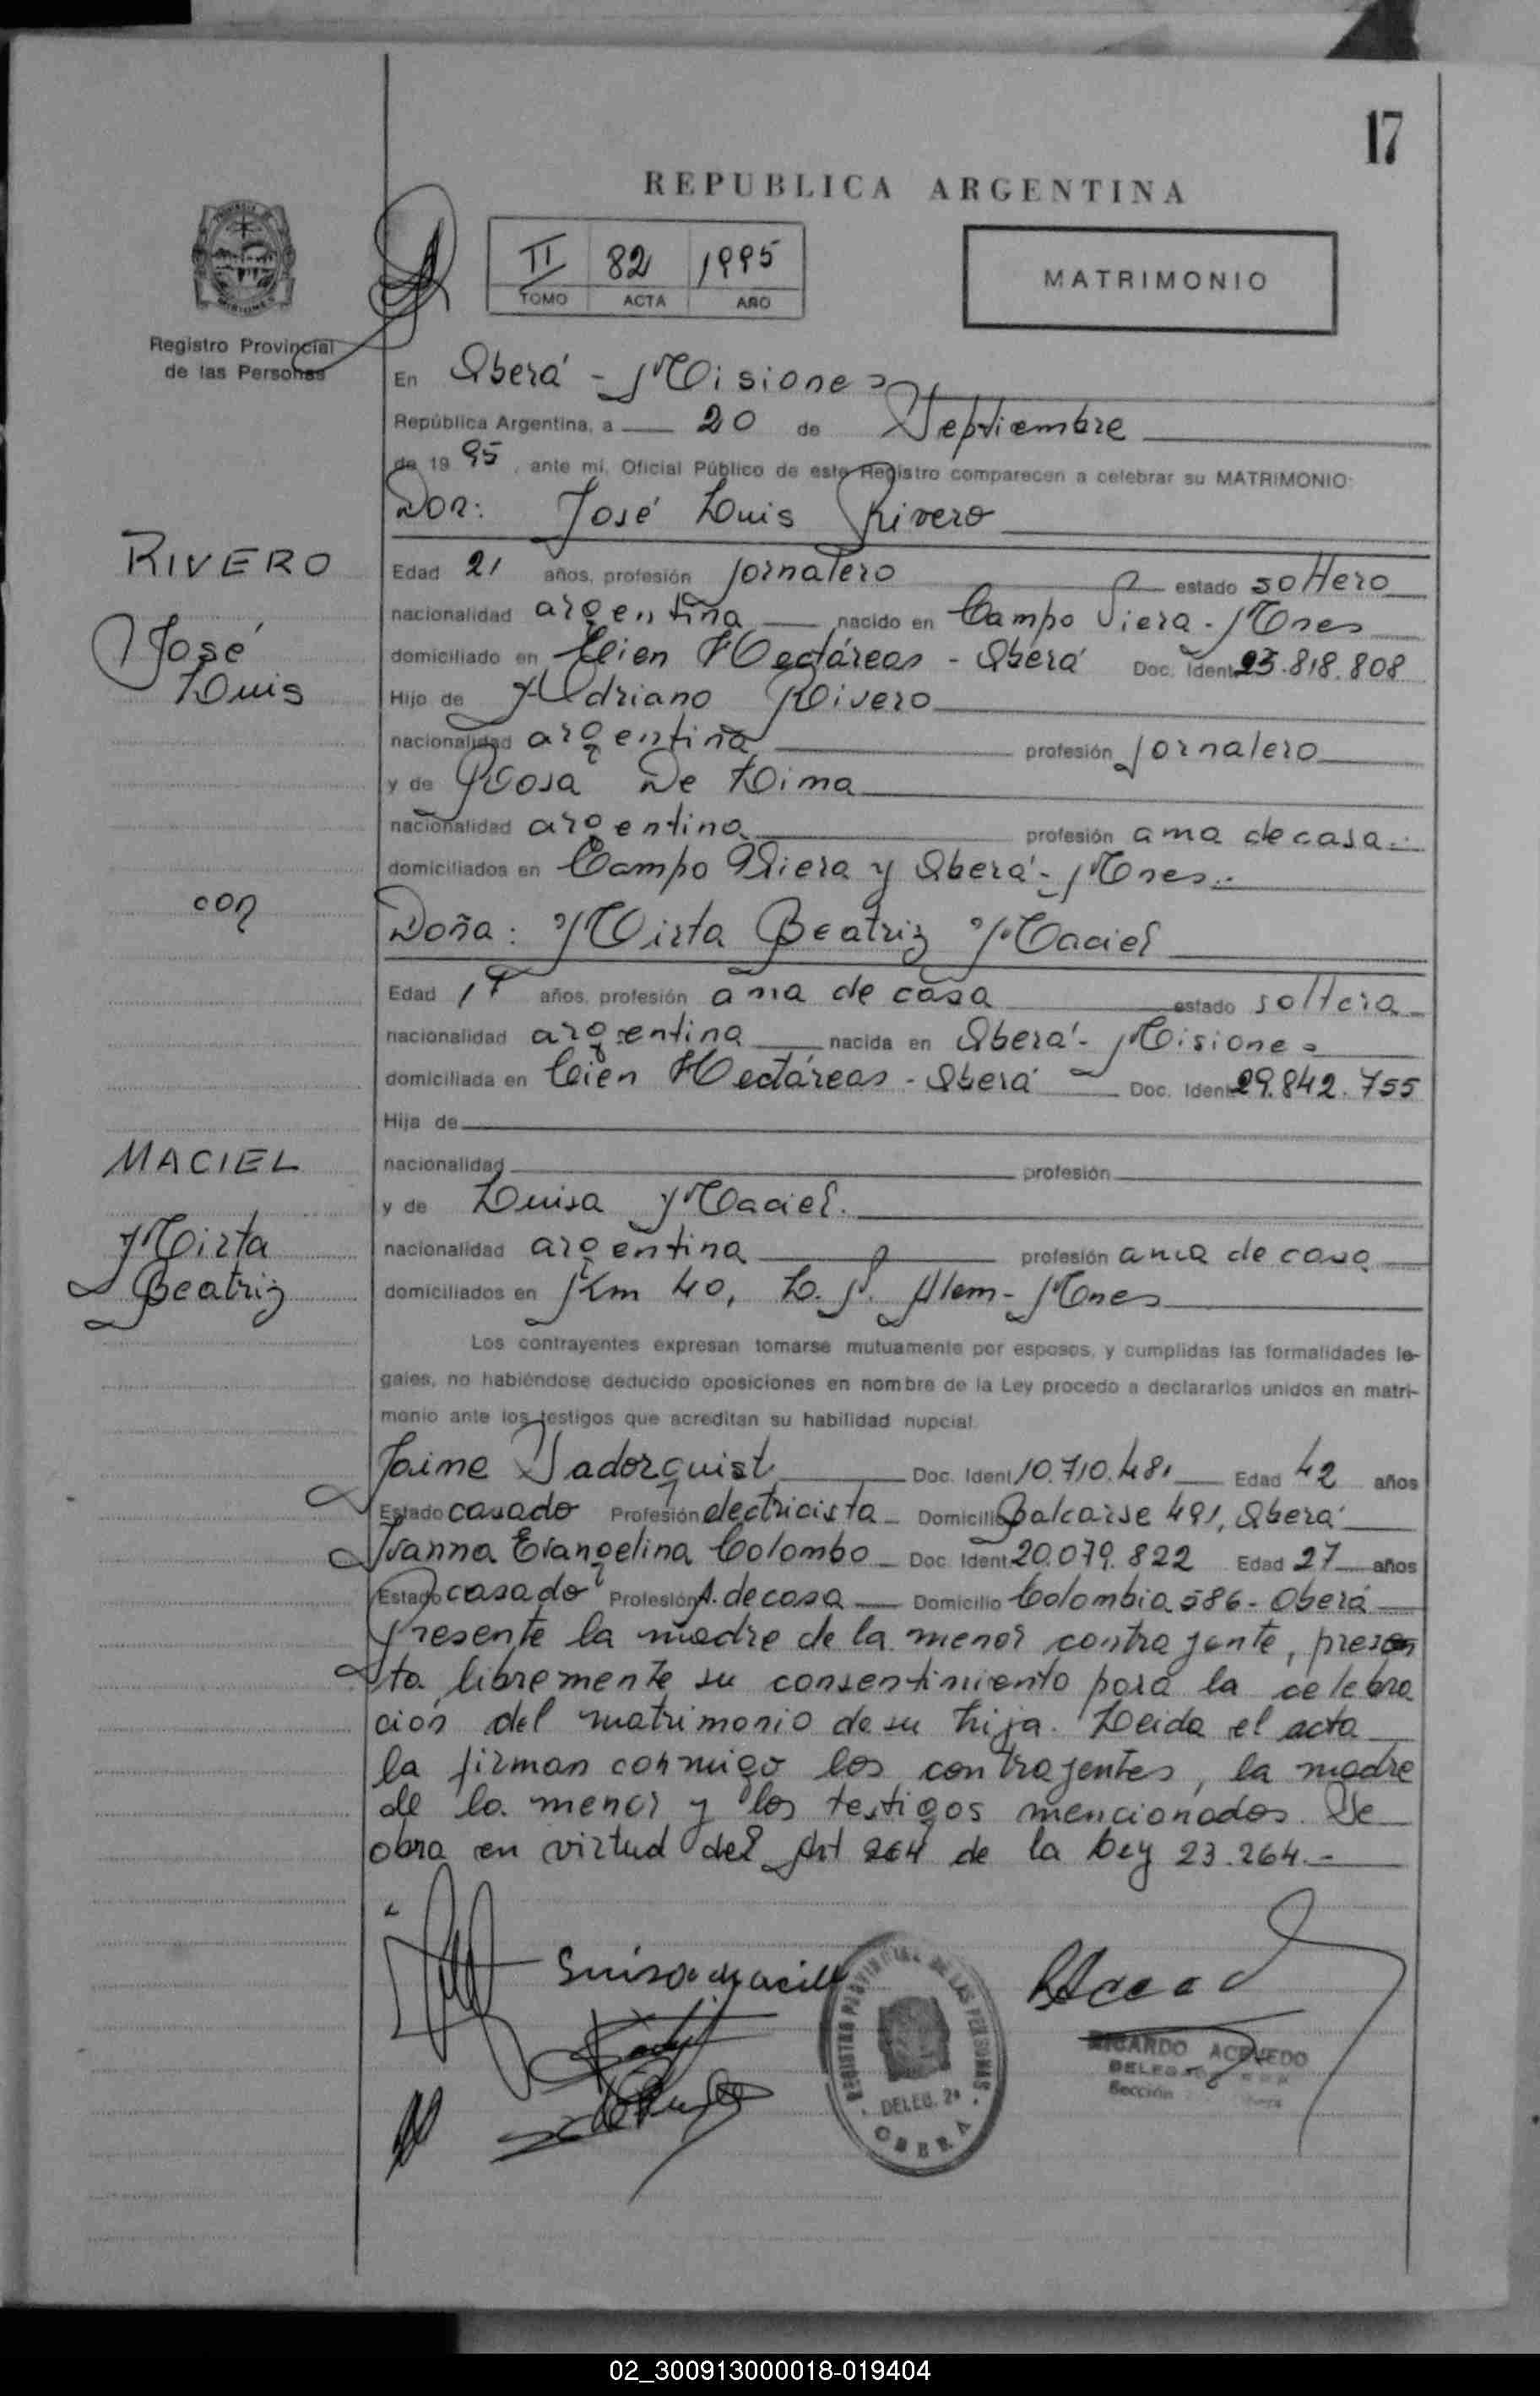 17
REPUBLICA ARGENTINA
II 82 1995
TOMO ACTA AÑO
MATRIMONIO
Registro Provincial
de las Personas
En Oberá - Misiones
República Argentina, a 20 de Septiembre
de 1995, ante mí, Oficial Público de este Registro comparecen a celebrar su MATRIMONIO:
Don: José Luis Rivero
RIVERO
José
Luis
Edad 21 años, profesión jornalero estado soltero
nacionalidad argentina nacido en Campo Viera - Mnes
domiciliado en Cien Hectáreas - Oberá Doc. Ident. 23.818.808
Hijo de Adriano Rivero
nacionalidad argentina profesión jornalero
y de Rosa De Lima
nacionalidad argentina profesión ama de casa.
domiciliados en Campo Viera y Oberá - Mnes.
con
Doña: Mirta Beatriz Maciel
Edad 17 años, profesión ama de casa estado soltera
nacionalidad argentina nacida en Oberá - Misiones
domiciliada en Cien Hectáreas - Oberá Doc. Ident. 29.842.755
Hija de
MACIEL
Mirta
Beatriz
nacionalidad profesión
y de Luisa Maciel.
nacionalidad argentina profesión ama de casa
domiciliados en Km 40, L. N. Alem - Mnes
Los contrayentes expresan tomarse mutuamente por esposos, y cumplidas las formalidades le-
gales, no habiéndose deducido oposiciones en nombre de la Ley procedo a declararlos unidos en matri-
monio ante los testigos que acreditan su habilidad nupcial.
Jaime Doc. Ident. 10.710.481 Edad 42 años
Estado casado Profesión electricista Domicilio Balcarse 491, Oberá
Ivanna Evangelina Colombo Doc. Ident. 20.079.822 Edad 27 años
Estado casado Profesión A. de casa Domicilio Colombia 586 - Oberá
Presente la madre de la menor contrayente, presen
ta libremente su consentimiento para la celebra
ción del matrimonio de su hija. Leida el acta
la firman conmigo los contrayentes, la madre
de la menor y los testigos mencionados. Se
obra en virtud del Art 264 de la Ley 23.264.-
Luisa Maciel
REGISTRO PROVINCIAL DE LAS PERSONAS
DELEG. 2ª
OBERA
RICARDO ACEVEDO
Sección
02_300913000018-019404